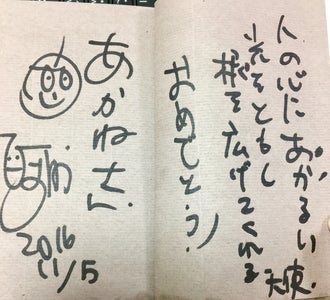 人の心にあかるい
光をともし
根を広げてくれる
天使.
おめでとう!
あかねさん
2016
11/5